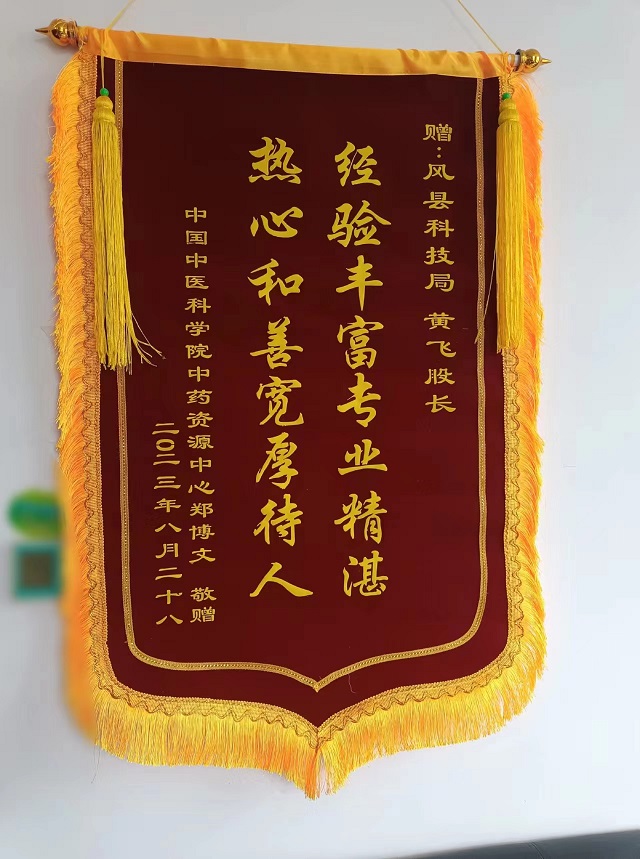 赠：凤县科技局 黄飞股长
经验丰富专业精湛
热心和善宽厚待人
中国中医科学院中药资源中心郑博文 敬赠
二〇二三年八月二十八